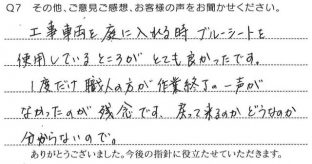 Q7 その他、ご意見ご感想、お客様の声をお聞かせください。
工事車両を庭に入れる時 ブルーシートを
使用しているところが とても良かったです。
1度だけ 職人の方が 作業終了の一声が
なかったのが 残念です、戻って来るのか どうなのか
分からないので。
ありがとうございました。今後の指針に役立たせていただきます。